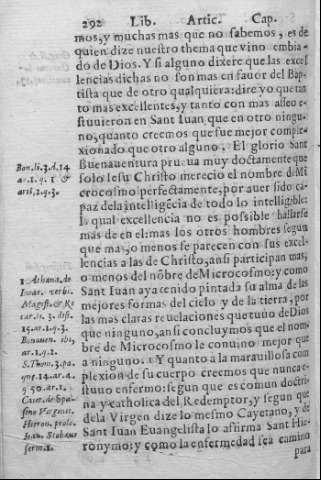 292 Lib. Artic. Cap.
mos, y muchas mas que no sabemos, es de
quien dize nuestro thema que vino embia-
do de Dios. Y si alguno dixere que las excel
lencias dichas no son mas en fauor del Bap-
tista que de otro qualquiera: dire yo que tã
to mas excellentes, y tanto con mas asseo e-
stuuieron en Sant Iuan que en otro ningu-
no, quanto creemos que fue mejor comple-
xionado que otro alguno. El glorioso Sant
Buenauentura prueua muy doctamente que
solo Iesu Christo merecio el nombre de Mi
crocosmo perfectamente, por auer sido ca-
paz dela intelligẽcia de todo lo intelligible:
lo qual excellencia no es possible hallarse
mas de en el: mas los otros hombres segun
que mas, o menos se parecen con sus excel-
lencias a las de Christo, ansi participan mas,
o menos del nõbre de Microcosmo: y como
Sant Iuan aya tenido pintada su alma de las
mejores formas del cielo y de la tierra, por
las mas claras reuelaciones que tuuo de Dios
que ninguno, ansi concluymos que el nom-
bre de Microcosmo le conuino mejor que
a ninguno. 1 Y quanto a la marauillosa com
plexion de su cuerpo creemos que nunca e-
stuuo enfermo: segun que es comun doctri-
na y catholica del Redemptor, y segun que
dela Virgen dize lo mesmo Cayetano, y de
Sant Iuan Euangelista lo affirma Sant Hie-
ronymo: y como la enfermedad sea camino
para
Bon. li. 3. d. 14
ar. 1. q. 1 &
ar. 2. q. 3.
1 Athana. de
Incar. verbi.
Magist. & Ri
car. li. 3. dist.
15. ar. 1. q. 3.
Bonauen. ibi,
ar. 1. q. 2.
S. Thom. 3. pa.
quę. 14. ar. 4.
Caiet. de Spa-
simo Virginis.
Hieron. prolo.
serm. 1.